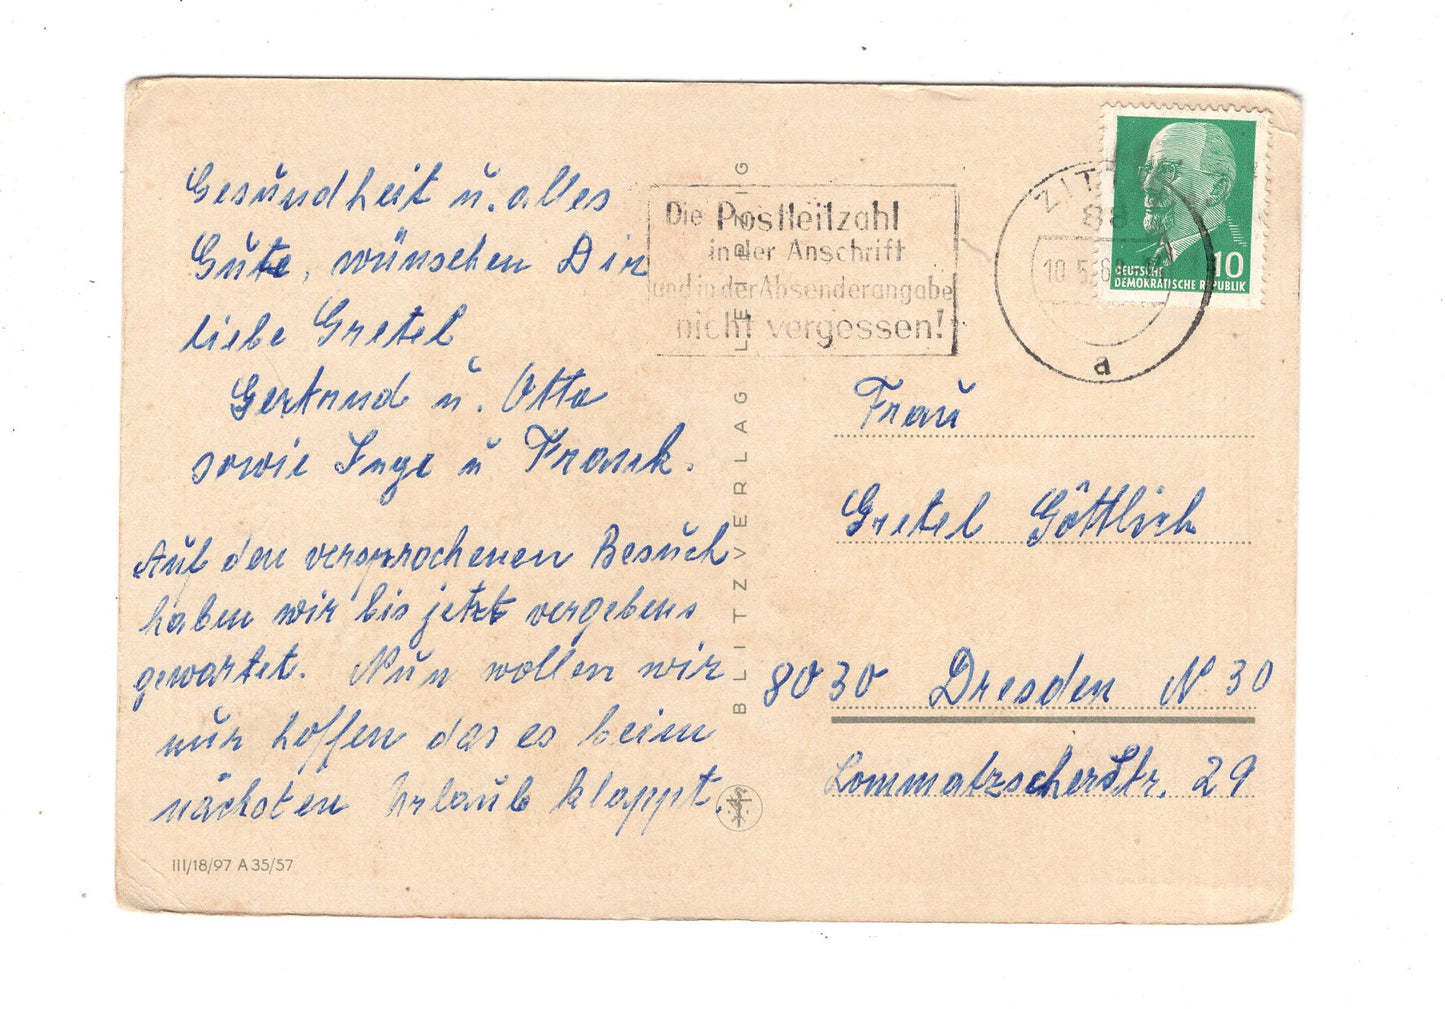 Gesundheit u. alles
Gute, wünschen Dir
liebe Gretel
Gertrud u. Otto
sowie Inge u Frank.
Auf den versprochenen Besuch
haben wir bis jetzt vergebens
gewartet. Nun wollen wir
nur hoffen das es beim
nächsten Urlaub klappt.
III/18/97 A 35/57
BLITZVERLAG LEIPZIG
Die Postleitzahl
in der Anschrift
und in der Absenderangabe
nicht vergessen!
88
10.5.
a
10
DEUTSCHE
DEMOKRATISCHE REPUBLIK
Frau
Gretel Göttlich
8030 Dresden N 30
Lommatzscherstr. 29